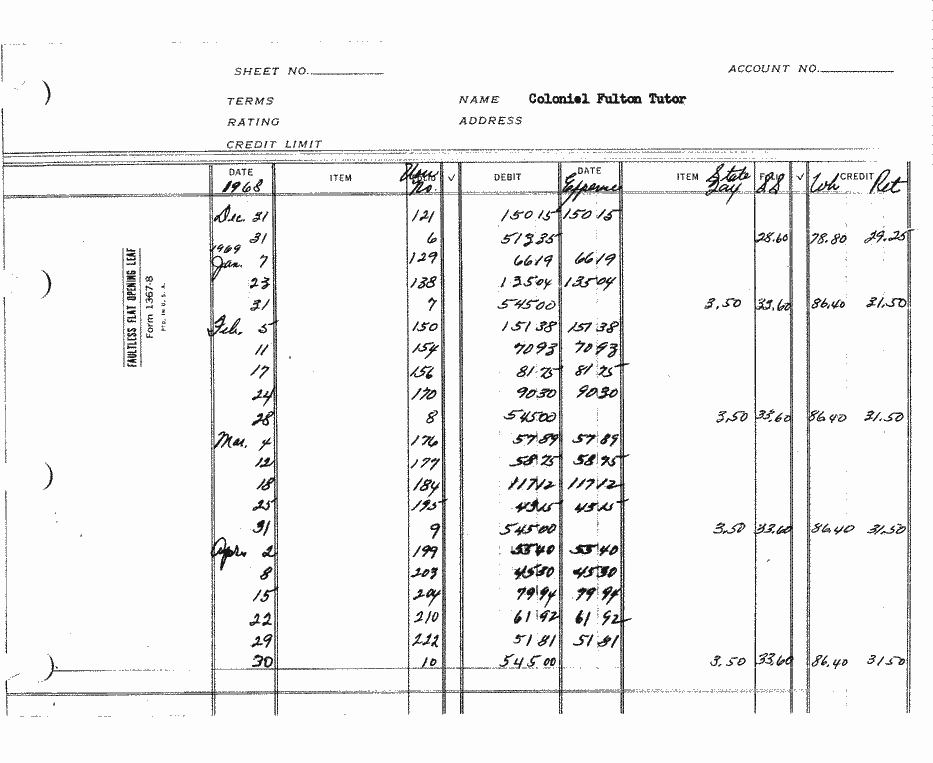 SHEET NO.
ACCOUNT NO.
TERMS
NAME Coloniel Fulton Tutor
RATING
ADDRESS
CREDIT LIMIT
DATE 1968 ITEM No. ✓ DEBIT DATE Expense ITEM State ✓ Wh CREDIT Ret
Dec. 31 121 150 15 150 15
31 6 513 35 28.60 78.80 29.25
1969
Jan. 7 129 66 19 66 19
23 138 135 04 135 04
31 7 545 00 3.50 33.60 86.40 31.50
Feb. 5 150 151 38 151 38
11 154 70 93 70 93
17 156 81 75 81 75
24 170 90 30 90 30
28 8 545 00 3.50 33.60 86.40 31.50
Mar. 4 176 57 89 57 89
12 177 58 75 58 75
18 184 117 12 117 12
25 195 43 15 43 15
31 9 545 00 3.50 33.60 86.40 31.50
Apr. 2 199 53 40 53 40
8 203 45 30 45 30
15 204 79 94 79 94
22 210 61 92 61 92
29 222 51 81 51 81
30 10 545 00 3.50 33.60 86.40 31 50
FAULTLESS FLAT OPENING LEAF
Form 1367-8
PTD. IN U. S. A.